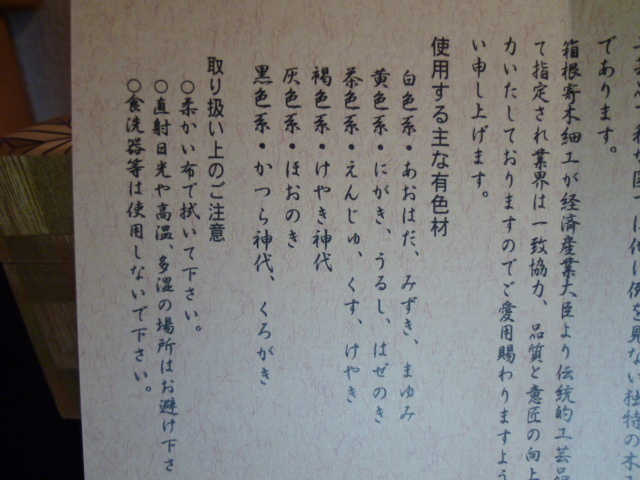 であります。
箱根寄木細工が経済産業大臣より伝統的工芸品
て指定され業界は一致協力、品質と意匠の向上
力いたしておりますのでご愛用賜わりますよう
い申し上げます。
使用する主な有色材
白色系・あおはだ、みずき、まゆみ
黄色系・にがき、うるし、はぜのき
茶色系・えんじゅ、くす、けやき
褐色系・けやき神代
灰色系・ほおのき
黒色系・かつら神代、くろがき
取り扱い上のご注意
○柔かい布で拭いて下さい。
○直射日光や高温、多湿の場所はお避け下さ
○食洗器等は使用しないで下さい。